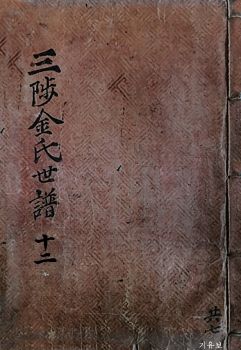 三陟金氏世譜 十二
共七
기유보